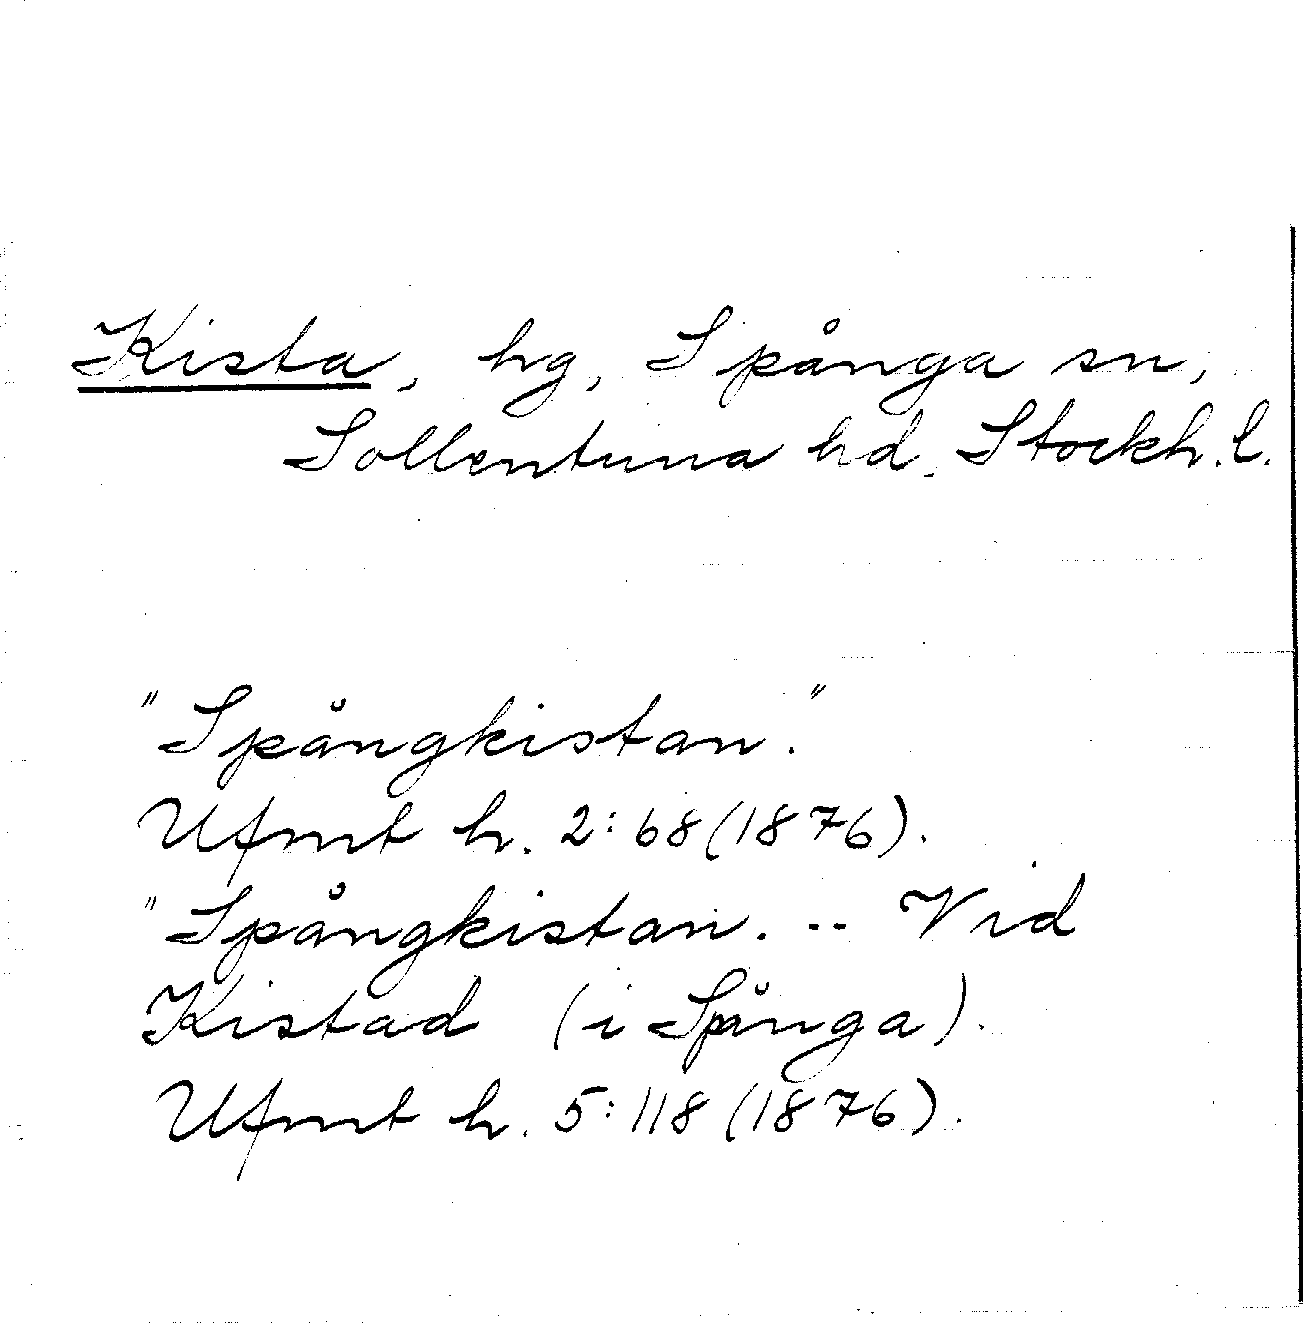 Kista, hg, Spånga sn,
Sollentuna hd. Stockh.l.
"Spångkistan."
Ufmt h. 2:68 (1876).
"Spångkistan. .. Vid
Kistad (i Spånga).
Ufmt h. 5:118 (1876).